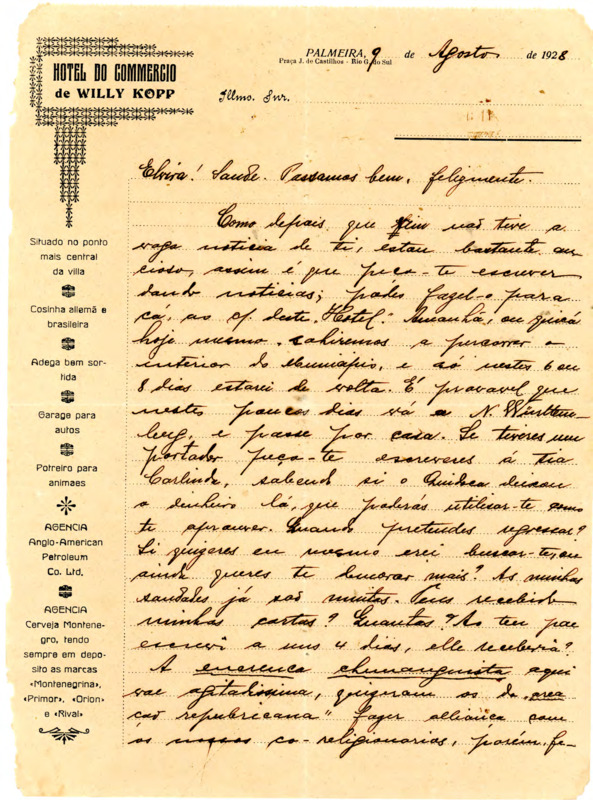 HOTEL DO COMMERCIO
de WILLY KOPP
PALMEIRA, 9 de Agosto de 1928
Praça J. de Castilhos - Rio G. do Sul
Illmo. Snr.
Situado no ponto
mais central
da villa
Cosinha allemã e
brasileira
Adega bem sor-
tida
Garage para
autos
Potreiro para
animaes
AGENCIA
Anglo-American
Petroleum
Co. Ltd.
AGENCIA
Cerveja Montene-
gro, tendo
sempre em depo-
sito as marcas
«Montenegrina»,
«Primor», «Orion»
e «Rival»
Elvira! Saude. Passamos bem, felizmente.
Como depois que vim não tive a
vaga noticia de ti, estou bastante an-
cioso, assim é que peço-te escrever
dando noticias; podes fazel-o para
cá, ao c/. deste "Hotel". Amanhã, ou quiçá
hoje mesmo, sahiremos a percorrer o
interior do Municipio, e só nestes 6 ou
8 dias estarei de volta. É provavel que
nestes poucos dias vá a N. Württem-
berg, e passe por casa. Se tiveres um
portador peço-te escreveres á tia
Carlinda, sabendo si o deixou
o dinheiro lá, que poderás utilisar-te como
te aprouver. Quando pretendes regressar?
Si quizeres eu mesmo irei buscar-te, ou
ainda queres te demorar mais? As minhas
saudades já são muitas. Tens recebido
minhas cartas? Quantas? Ao teu pae
escrevi a uns 4 dias, elle receberia?
A encrenca chimanguista aqui
vae agitadissima, quizeram os da "rea
ção republicana" fazer alliança com
os nossos co-religionarios, porém, fe-